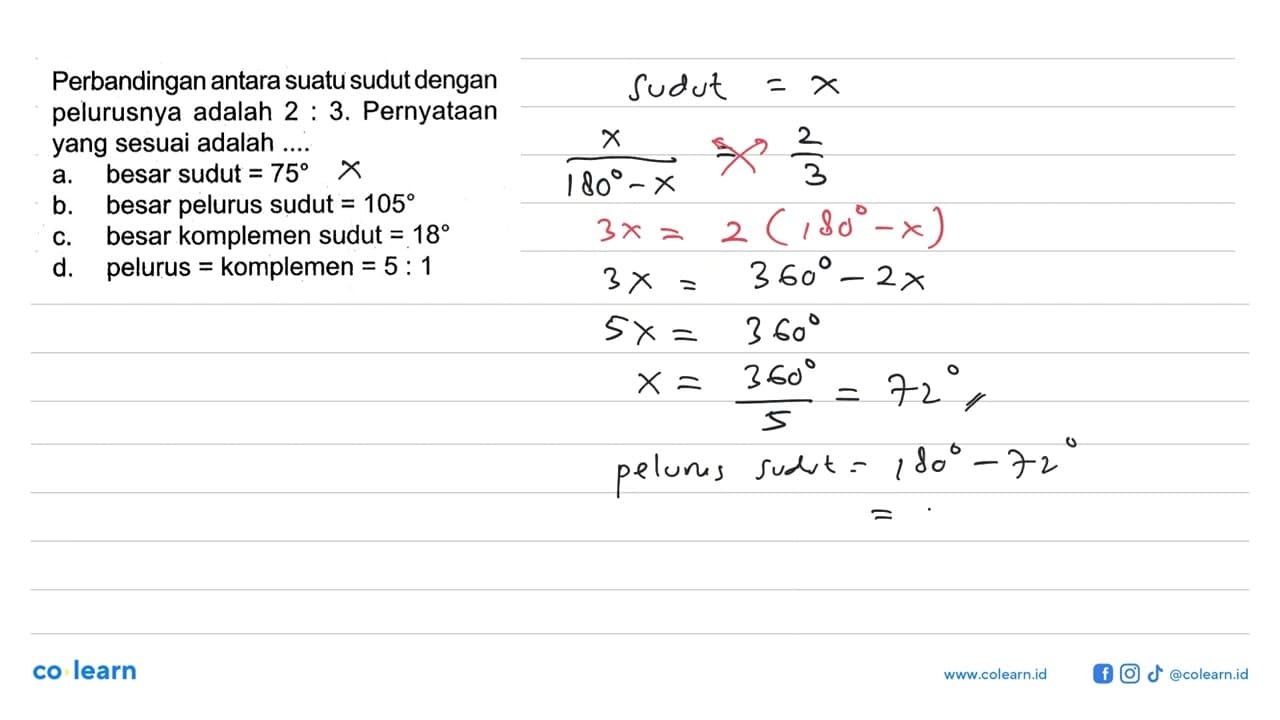 Perbandingan antara suatu sudut dengan
pelurusnya adalah 2 : 3. Pernyataan
yang sesuai adalah ....
a. besar sudut = 75° ×
b. besar pelurus sudut = 105°
c. besar komplemen sudut = 18°
d. pelurus = komplemen = 5 : 1
Sudut = x
x / 180° - x = 2 / 3
3x = 2 (180° - x)
3x = 360° - 2x
5x = 360°
x = 360° / 5 = 72°
pelurus sudut = 180° - 72°
=
co learn
www.colearn.id @colearn.id